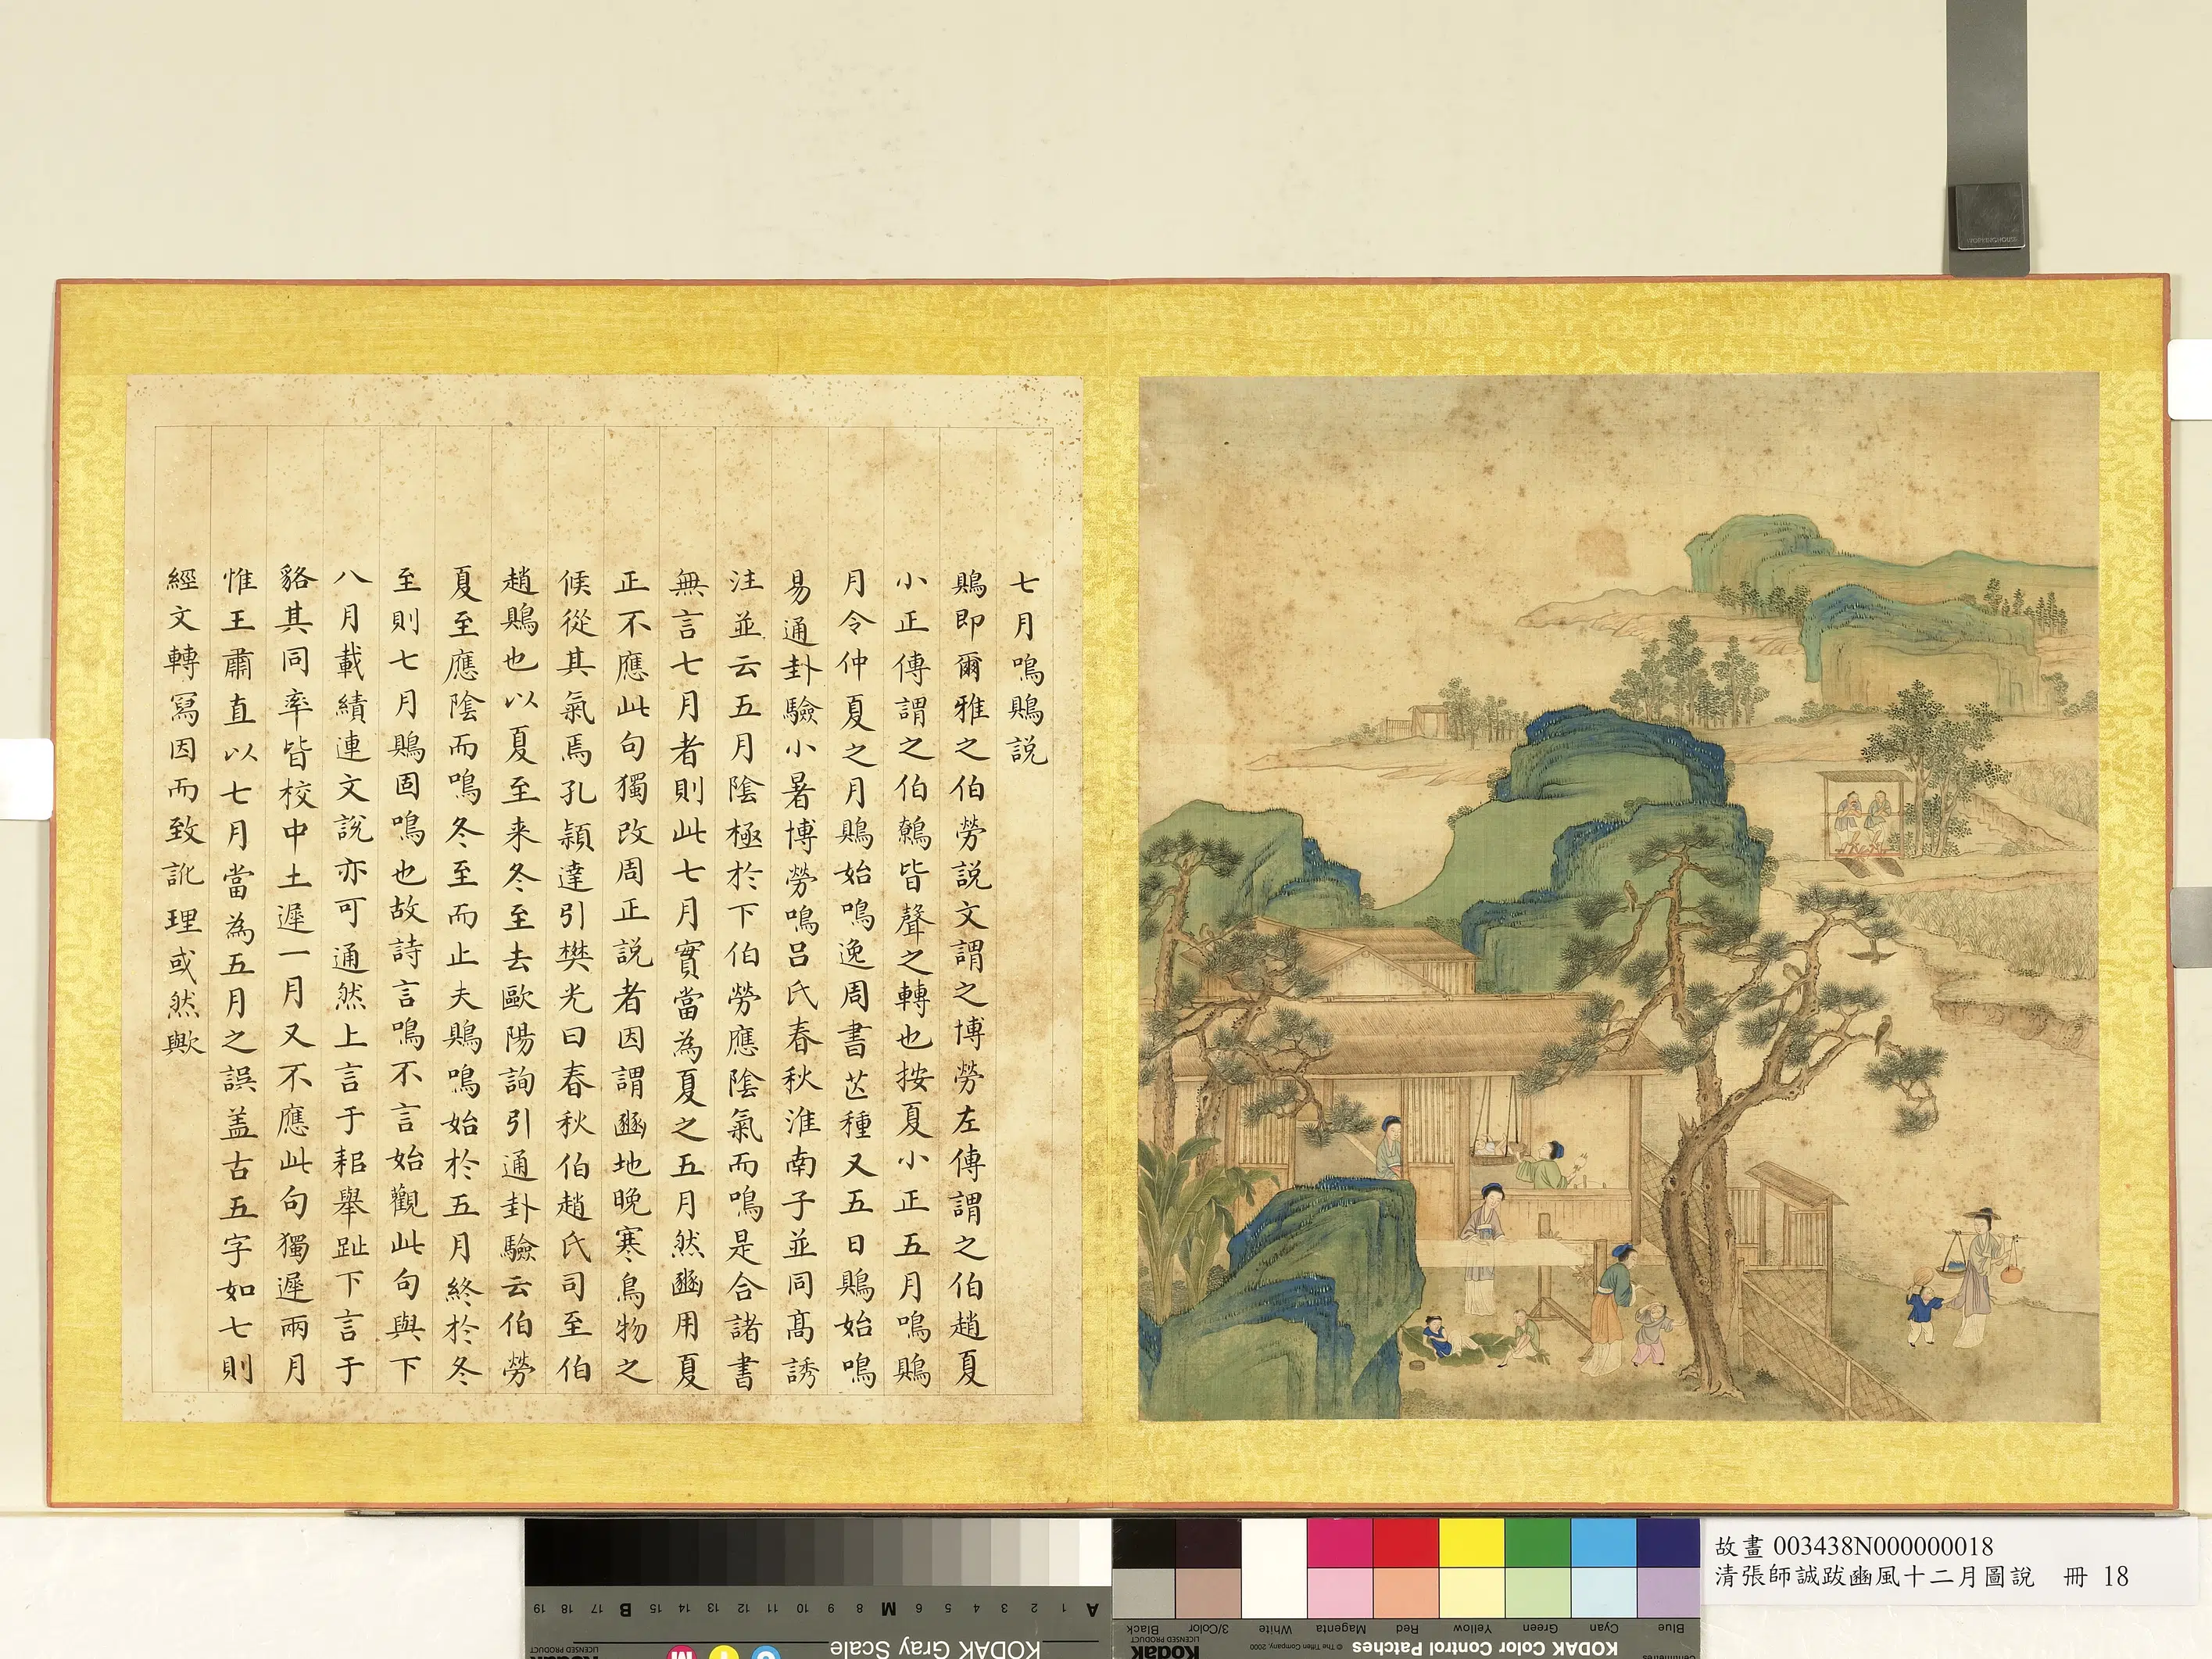 七月鳴鵙説
鵙即爾雅之伯勞説文謂之博勞左傳謂之伯趙夏
小正傳謂之伯鷯皆聲之轉也按夏小正五月鳴鵙
月令仲夏之月鵙始鳴逸周書芒種又五日鵙始鳴
易通卦驗小暑博勞鳴呂氏春秋淮南子並同高誘
注並云五月陰極於下伯勞應陰氣而鳴是合諸書
無言七月者則此七月實當為夏之五月然豳用夏
正不應此句獨改周正説者因謂豳地晚寒鳥物之
候從其氣焉孔穎達引樊光曰春秋伯趙氏司至伯
趙鵙也以夏至来冬至去歐陽詢引通卦驗云伯勞
夏至應陰而鳴冬至而止夫鵙鳴始於五月終於冬
至則七月鵙固鳴也故詩言鳴不言始觀此句與下
八月載績連文說亦可通然上言于耜舉趾下言于
貉其同率皆校中土遲一月又不應此句獨遲兩月
惟王肅直以七月當為五月之誤盖古五字如七則
經文轉寫因而致訛理或然歟
故畫 003438N000000018
清張師誠跋豳風十二月圖說 冊 18
KODAK Gray Scale
A 1 2 3 4 5 6 M 8 9 10 11 12 13 14 15 B 17 18 19
LICENSED PRODUCT
KODAK Color Control Patches
© The Tiffen Company, 2000
Kodak
LICENSED PRODUCT
Blue Cyan Green Yellow Red Magenta White 3/Color Black